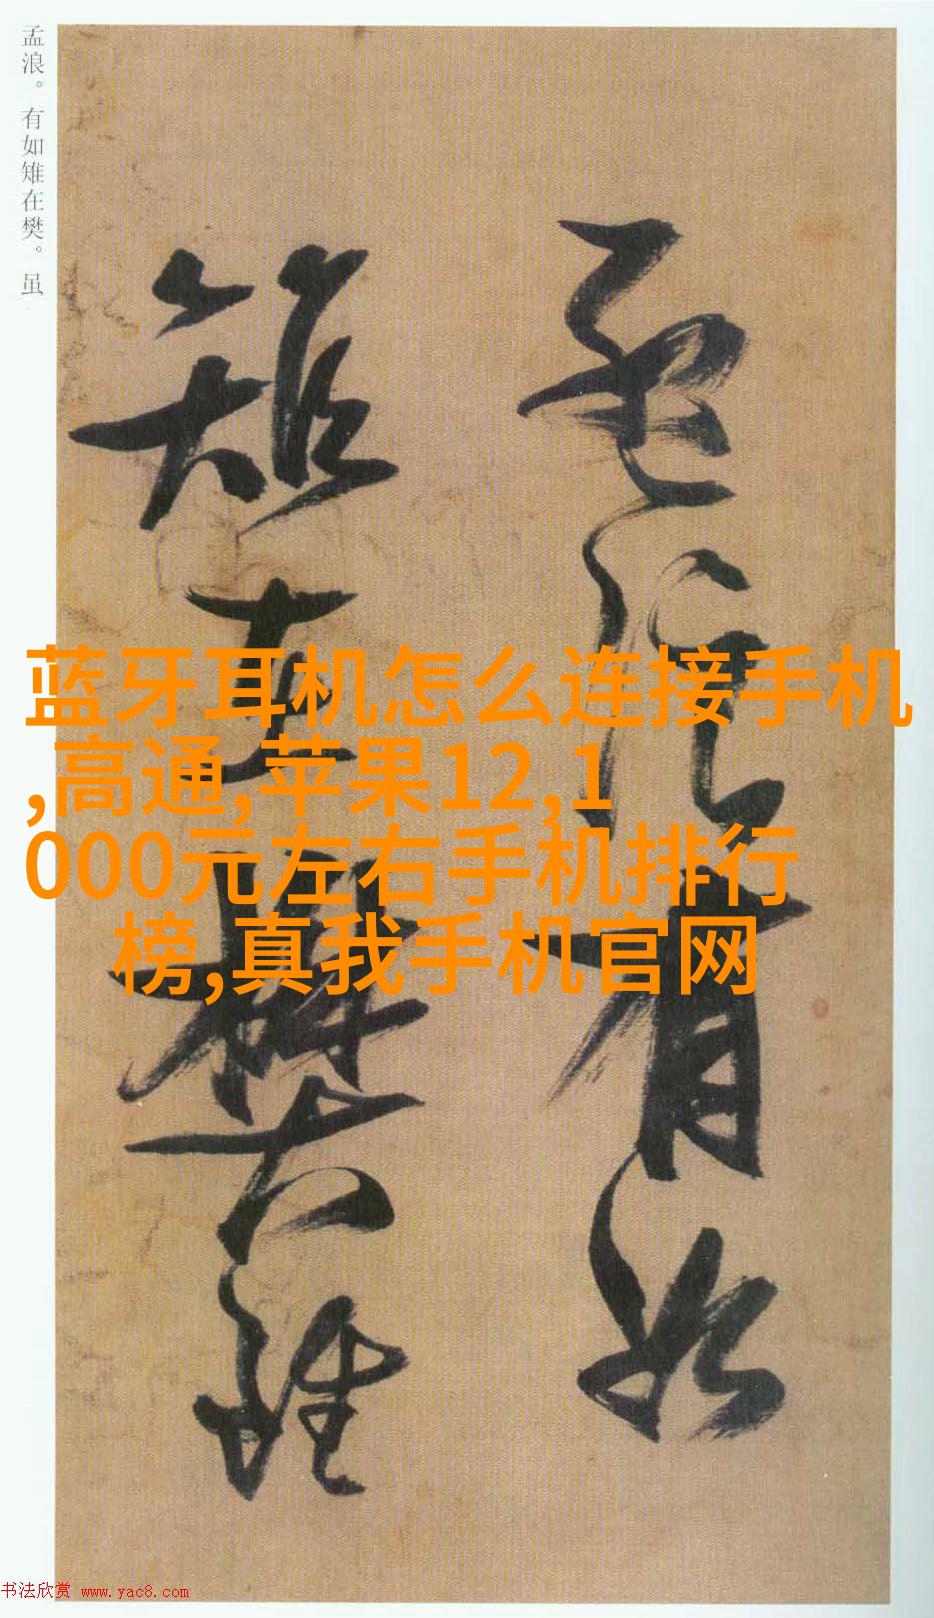 孟浪。有如雉在樊。虽
孟浪有如
雉在樊虽
蓝牙耳机怎么连接手机
,高通,苹果12,1
000元左右手机排行
榜,真我手机官网
书法欣赏 www.yac8.com